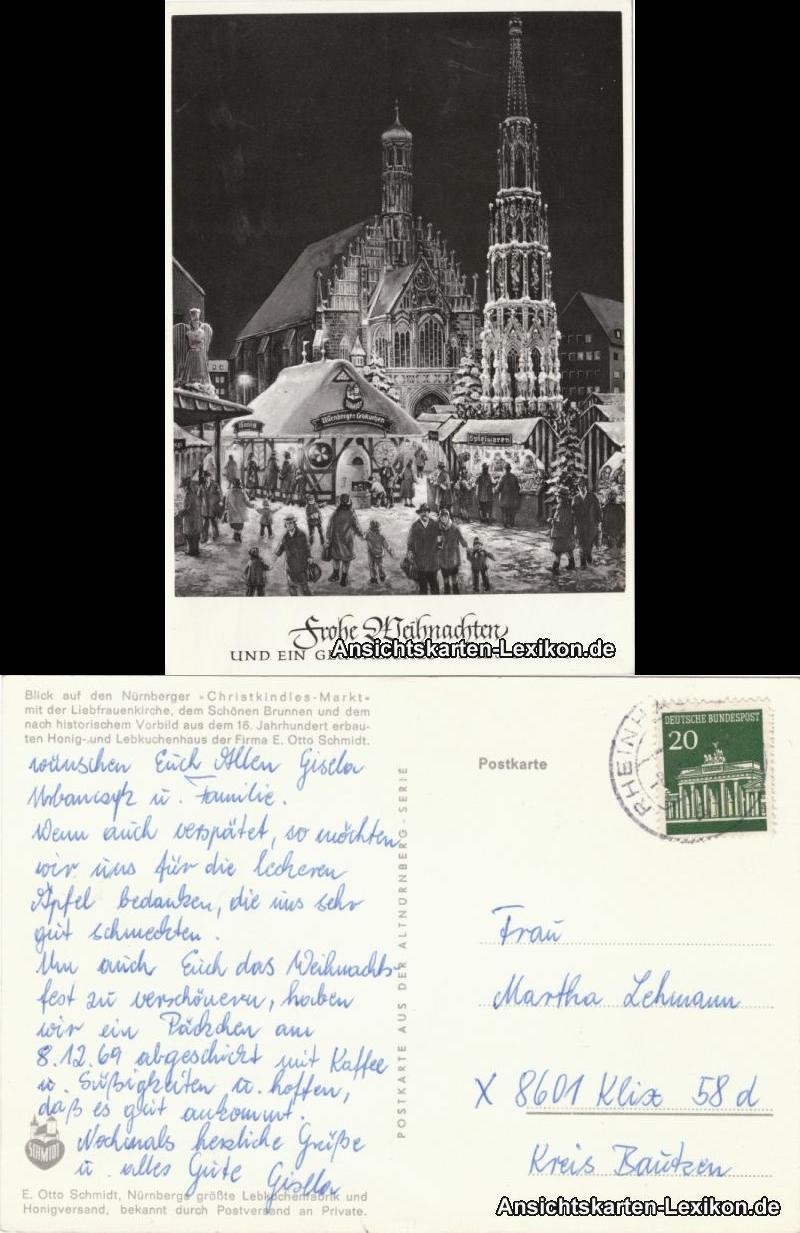 Honig
Nürnberger Lebkuchen
Spielwaren
Frohe Weihnachten
UND EIN
Ansichtskarten-Lexikon.de
Blick auf den Nürnberger »Christkindles-Markt«
mit der Liebfrauenkirche, dem Schönen Brunnen und dem
nach historischem Vorbild aus dem 16. Jahrhundert erbau-
ten Honig-und Lebkuchenhaus der Firma E. Otto Schmidt.
wünschen Euch Allen Gisela
Urbanczyk u. Familie.
Wenn auch verspätet, so möchten
wir uns für die leckeren
Äpfel bedanken, die uns sehr
gut schmeckten.
Um auch Euch das Weihnachts-
fest zu verschönern, haben
wir ein Päckchen am
8.12.69 abgeschickt mit Kaffee
u. Süßigkeiten u. hoffen,
daß es gut ankommt.
Nochmals herzliche Grüße
u. alles Gute Gisela
SCHMIDT
E. Otto Schmidt, Nürnbergs größte Lebkuchenfabrik und
Honigversand, bekannt durch Postversand an Private.
POSTKARTE AUS DER ALTNÜRNBERG-SERIE
Postkarte
RHEINH
DEUTSCHE BUNDESPOST
20
Frau
Martha Lehmann
X 8601 Klix 58 d
Kreis Bautzen
Ansichtskarten-Lexikon.de